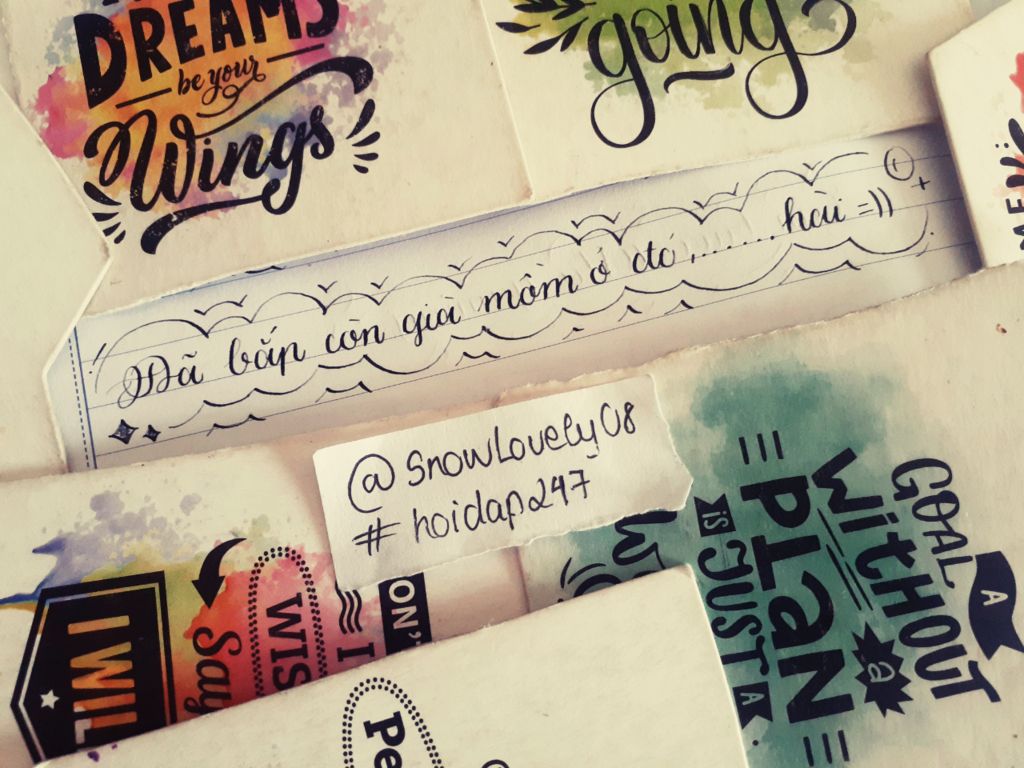 DREAMS
be your
Wings
going
Đã bắp còn già mồm ở đó,.......hài =))
@SnowLovely08
#hoidap247
GOAL
WITHOUT
A
a
PLAN
IS JUST A
I WIL
Say
WIS
I
ON'
Pe
ME